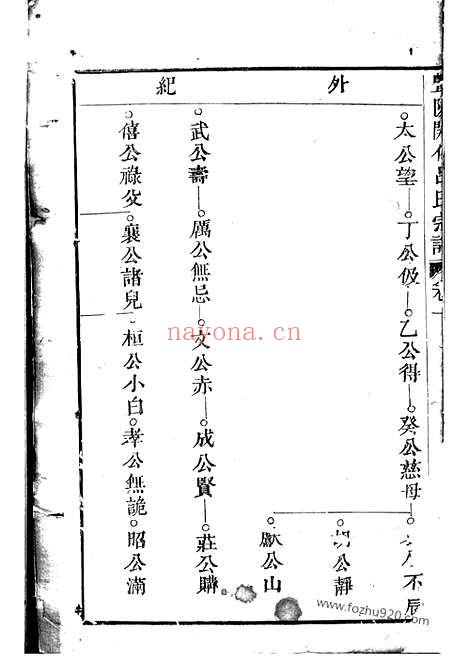 外
紀
太公望 丁公伋 乙公得 癸公慈母 公不辰
胡公靜
獻公山
武公壽 厲公無忌 文公赤 成公賢 莊公購
僖公祿父 襄公諸兒 桓公小白 孝公無詭 昭公滿
呂氏宗譜 卷
nayona.cn
www.fozhu920.com